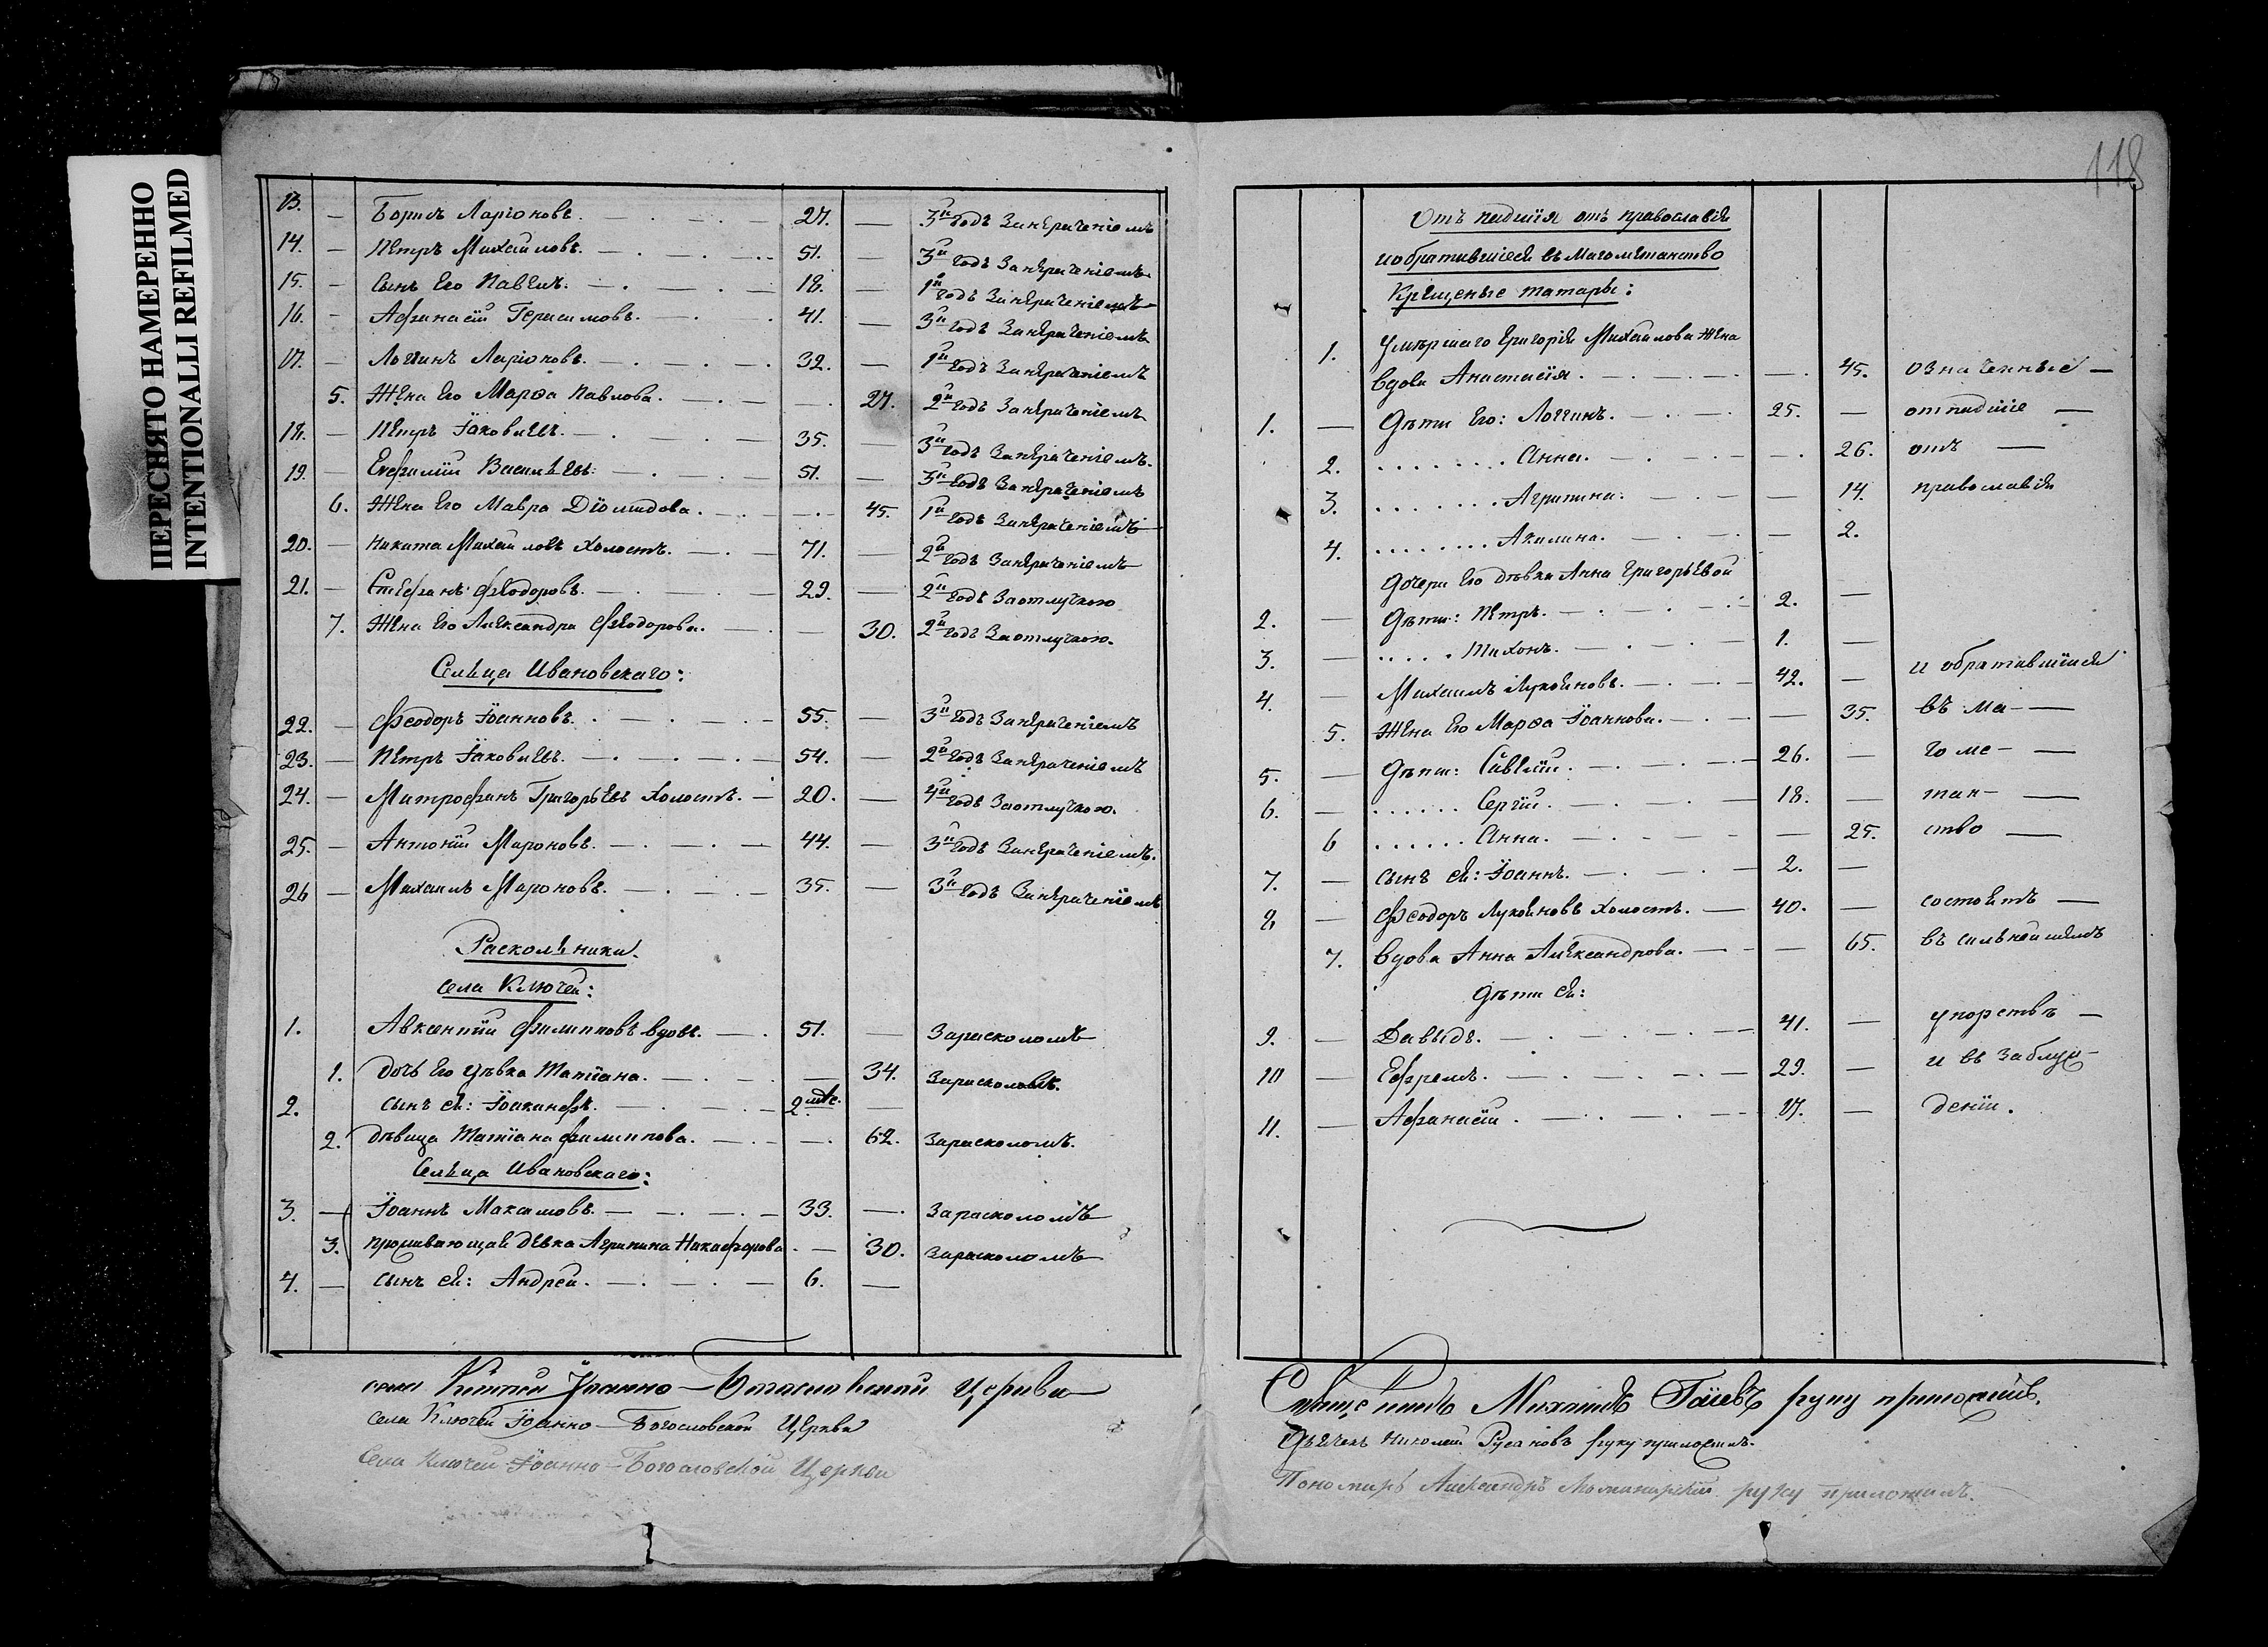 ПЕРЕСНЯТО НАМЕРЕННО
INTENTIONALLI REFILMED
13. — Борисъ Ларіоновъ. 27. — 3й годъ За нерачениемъ
14. — Петръ Михаиловъ. 51. — 3й годъ За нерачениемъ
15. — Сынъ Его Павелъ. 18. — 1й годъ За нерачениемъ
16. — Афанасій Герасимовъ. 41. — 3й годъ За нерачениемъ
17. — Логинъ Ларіоновъ. 32. — 1й годъ За нерачениемъ
5. Жена Его Марѳа Павлова. — 27. 2й годъ За нерачениемъ
18. — Петръ Іаковлевъ. 35. — 3й годъ За нерачениемъ.
19. — Евфимій Васильевъ. 51. — 3й годъ За нерачениемъ
6. Жена Его Мавра Діомидова. — 45. 1й годъ За нерачениемъ
20. — Никита Михаиловъ Холостъ. 71. — 2й годъ За нерачениемъ
21. — Стефанъ Феодоровъ. 29. — 2й годъ За отлучкою
7. Жена Его Александра Феодорова. — 30. 2й годъ За отлучкою.
Сельца Ивановскаго:
22. — Феодоръ Іоанновъ. 55. — 3й годъ За нерачениемъ
23. — Петръ Іаковлевъ. 54. — 2й годъ За нерачениемъ
24. — Митрофанъ Григорьевъ Холостъ. 20. — 4й годъ За отлучкою.
25. — Антоній Мароновъ. 44. — 3й годъ За нерачениемъ.
26 — Михаилъ Мароновъ. 35. — 3й годъ За нерачениемъ
Раскольники.
села Ключей:
1. Авксентій Филипповъ вдовъ. 51. — За расколомъ
1. Дочь Его дѣвка Татіана. — 34. За расколомъ.
2. сынъ ея: Іоакинфъ. 2 мѣс. —
2. дѣвица Татіана Филиппова. — 62. За расколомъ.
Сельца Ивановскаго:
3. — Іоаннъ Максимовъ. 33. — За расколомъ
3. проживающая дѣвка Агрипина Никифорова. — 30. За расколомъ
4. — сынъ ея: Андрей. 6. —
села Ключей Іоанно-Богословской Церкви
села Ключей Іоанно-Богословской Церкви
Села Ключей Іоанно-Богословской Церкви
118
Отъ падшія отъ православія
и обратившіеся въ магометанство
Крещеные татары:
1. Умершаго Григорія Михаилова Жена
вдова Анастасія. — 45. означенные —
1. — Дѣти Его: Логгинъ. 25. — отпадшіе —
2. Анна. — 26. отъ —
3. Агрипина. — 14. православія
4. Акилина. — 2.
дочери Его дѣвки Анны Григорьевой
2. — Дѣти: Петръ. 2. —
3. — Тихонъ. 1. —
4. — Михаилъ Лукояновъ. 42. — и обратившіися
5. Жена Его Марѳа Іоаннова. — 35. въ ма- —
5. — Дѣти: Савелій. 26. — гоме- —
6. Сергій. 18. — тан- —
6 Анна. — 25. ство —
7. — сынъ ея: Іоаннъ. 2. —
8 — Феодоръ Лукояновъ холостъ. 40. — состоятъ —
7. вдова Анна Александрова. — 65. въ сильнейшемъ
Дѣти ея:
9. — Давыдъ. 41. — упорствѣ —
10 — Ефремъ. 29. — и въ заблуж-
11. — Афанасій. 17. — деніи.
Священникъ Михаилъ руку приложилъ.
Дьячекъ Николай Русановъ руку приложилъ.
Пономарь Александръ руку приложилъ.